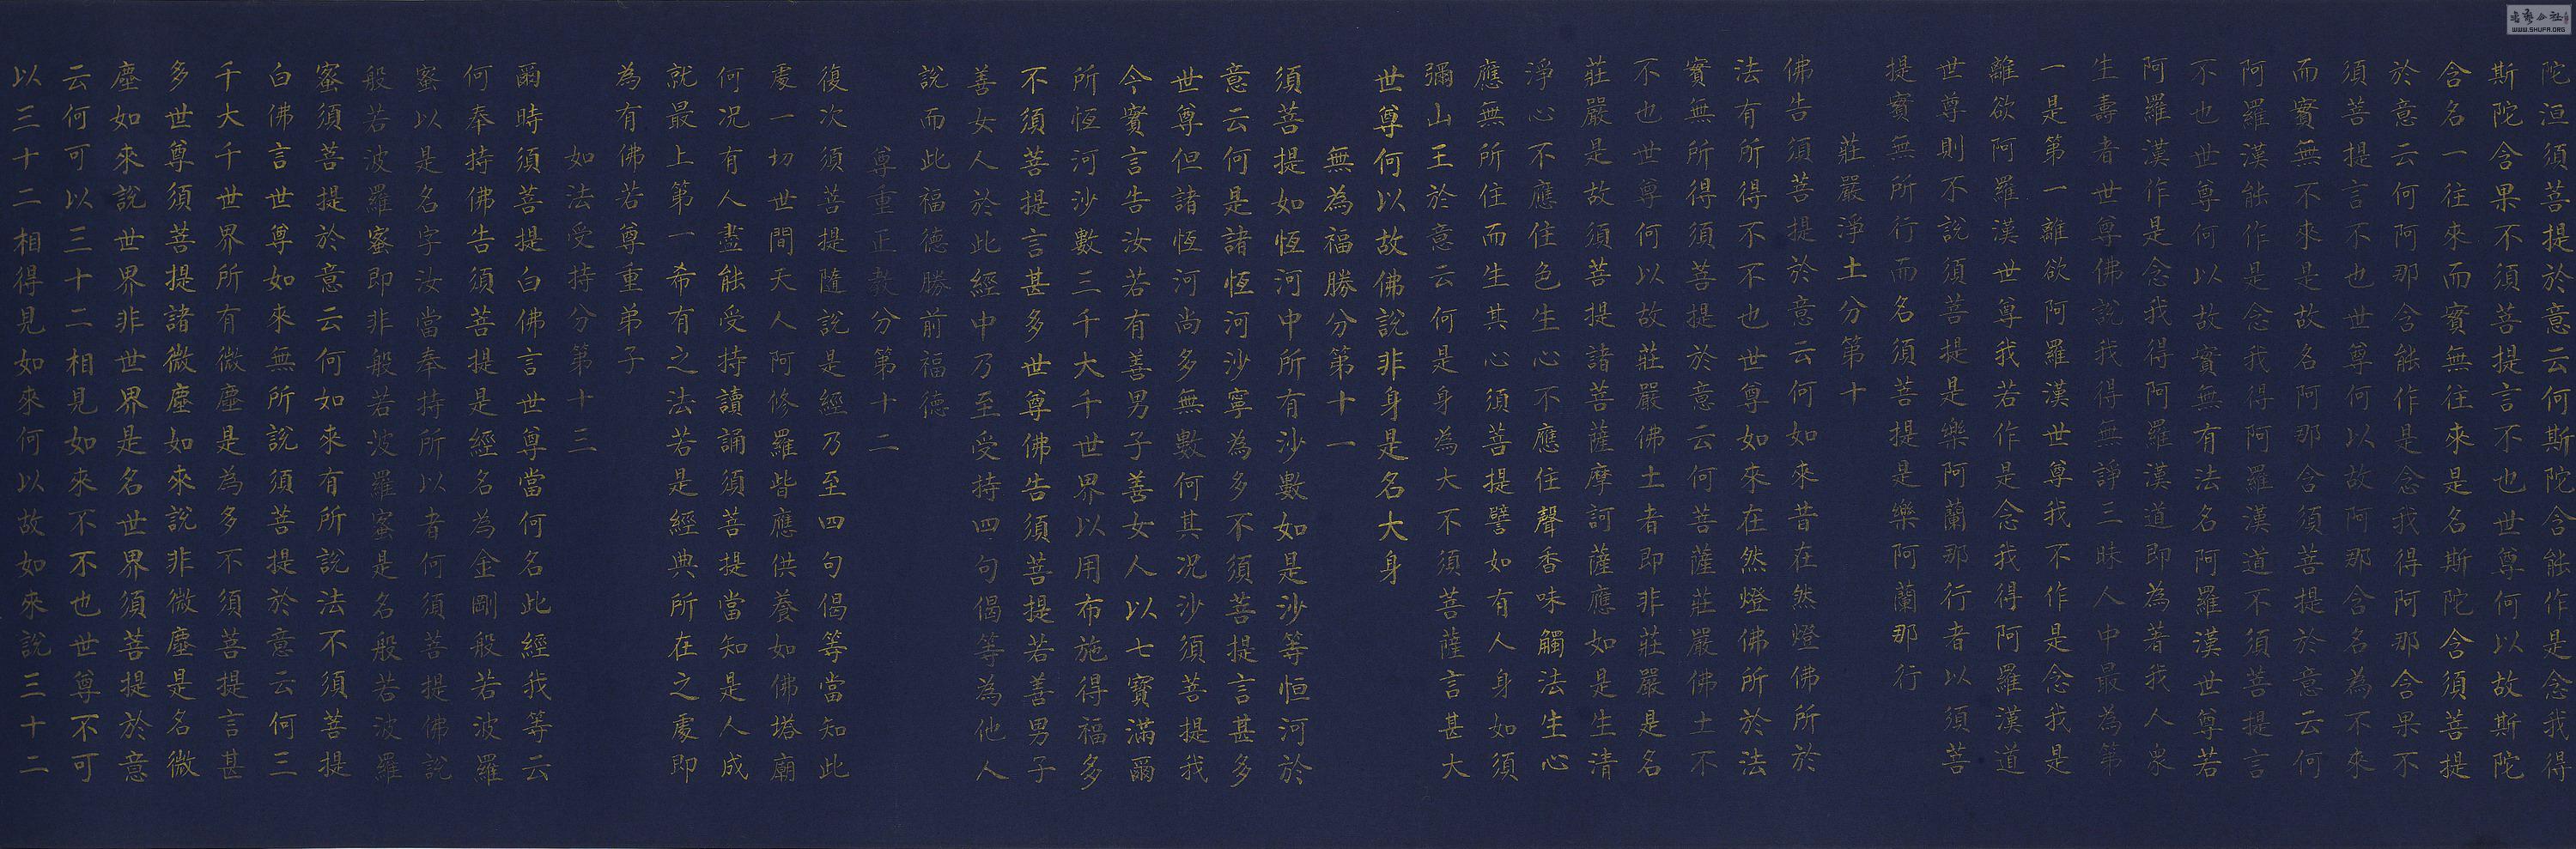 陀洹須菩提於意云何斯陀含能作是念我得
斯陀含果不須菩提言不也世尊何以故斯陀
含名一往來而實無往來是名斯陀含須菩提
於意云何阿那含能作是念我得阿那含果不
須菩提言不也世尊何以故阿那含名為不來
而實無不來是故名阿那含須菩提於意云何
阿羅漢能作是念我得阿羅漢道不須菩提言
不也世尊何以故實無有法名阿羅漢世尊若
阿羅漢作是念我得阿羅漢道即為著我人眾
生壽者世尊佛說我得無諍三昧人中最為第
一是第一離欲阿羅漢世尊我不作是念我是
離欲阿羅漢世尊我若作是念我得阿羅漢道
世尊則不說須菩提是樂阿蘭那行者以須菩
提實無所行而名須菩提是樂阿蘭那行
莊嚴淨土分第十
佛告須菩提於意云何如來昔在然燈佛所於
法有所得不不也世尊如來在然燈佛所於法
實無所得須菩提於意云何菩薩莊嚴佛土不
不也世尊何以故莊嚴佛土者即非莊嚴是名
莊嚴是故須菩提諸菩薩摩訶薩應如是生清
淨心不應住色生心不應住聲香味觸法生心
應無所住而生其心須菩提譬如有人身如須
彌山王於意云何是身為大不須菩薩言甚大
世尊何以故佛說非身是名大身
無為福勝分第十一
須菩提如恆河中所有沙數如是沙等恒河於
意云何是諸恆河沙寧為多不須菩提言甚多
世尊但諸恆河尚多無數何其況沙須菩提我
今實言告汝若有善男子善女人以七寶滿爾
所恆河沙數三千大千世界以用布施得福多
不須菩提言甚多世尊佛告須菩提若善男子
善女人於此經中乃至受持四句偈等為他人
說而此福德勝前福德
尊重正教分第十二
復次須菩提隨說是經乃至四句偈等當知此
處一切世間天人阿修羅皆應供養如佛塔廟
何況有人盡能受持讀誦須菩提當知是人成
就最上第一希有之法若是經典所在之處即
為有佛若尊重弟子
如法受持分第十三
爾時須菩提白佛言世尊當何名此經我等云
何奉持佛告須菩提是經名為金剛般若波羅
蜜以是名字汝當奉持所以者何須菩提佛說
般若波羅蜜即非般若波羅蜜是名般若波羅
蜜須菩提於意云何如來有所說法不須菩提
白佛言世尊如來無所說須菩提於意云何三
千大千世界所有微塵是為多不須菩提言甚
多世尊須菩提諸微塵如來說非微塵是名微
塵如來說世界非世界是名世界須菩提於意
云何可以三十二相見如來不不也世尊不可
以三十二相得見如來何以故如來說三十二
WWW.SHUFA.ORG